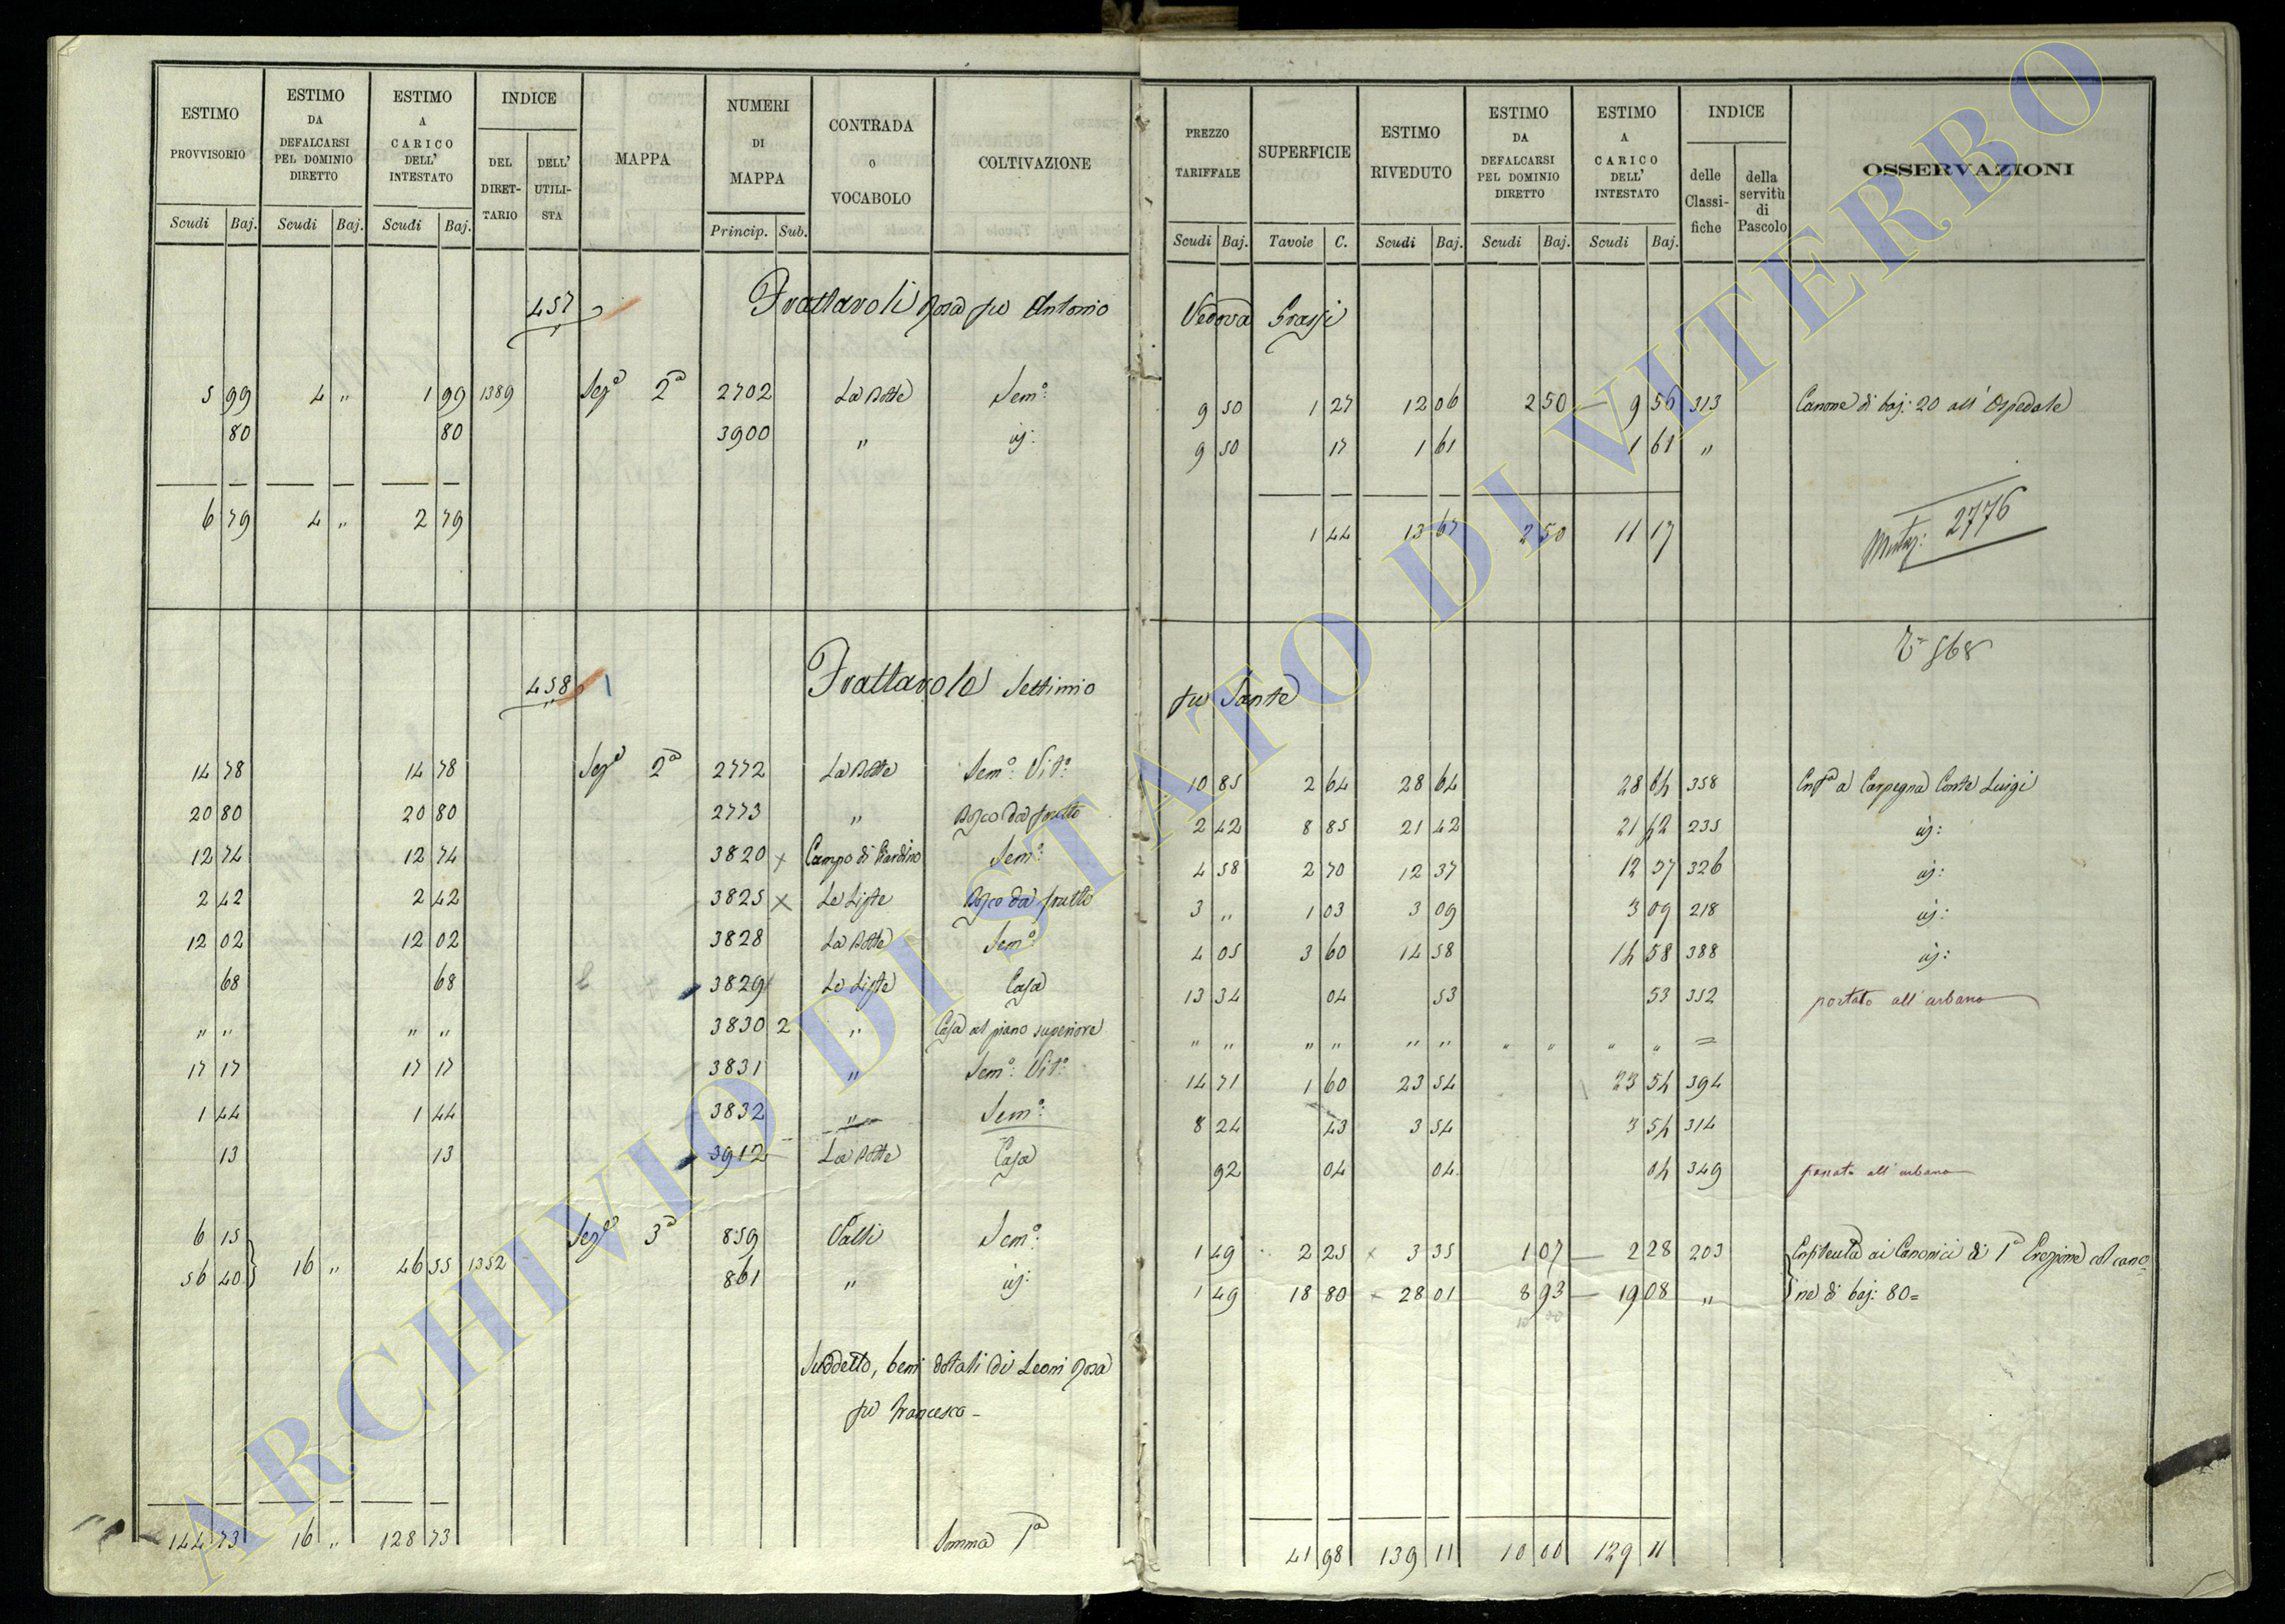 ESTIMO PROVVISORIO | ESTIMO DA DEFALCARSI PEL DOMINIO DIRETTO | ESTIMO A CARICO DELL' INTESTATO | INDICE | MAPPA | NUMERI DI MAPPA | CONTRADA o VOCABOLO | COLTIVAZIONE | PREZZO TARIFFALE | SUPERFICIE | ESTIMO RIVEDUTO | ESTIMO DA DEFALCARSI PEL DOMINIO DIRETTO | ESTIMO A CARICO DELL' INTESTATO | INDICE | OSSERVAZIONI
DEL DIRET-TARIO | DELL' UTILI-STA | delle Classi-fiche | della servitù di Pascolo
Scudi Baj. | Scudi Baj. | Scudi Baj. | Princip. Sub. | Scudi Baj. | Tavole C. | Scudi Baj. | Scudi Baj. | Scudi Baj.
457 Frattaroli Rosa fu Antonio Vedova Grassi
5 99 | 4 " | 1 99 | 1389 | Sezᵉ 2ª | 2702 | La Botte | Semº: | 9 50 | 1 27 | 12 06 | 2 50 | 9 56 | 313 | Canone di baj: 20 all' Ospedale
80 | 80 | 3900 | " | id: | 9 50 | 17 | 1 61 | 1 61 | "
6 79 | 4 " | 2 79 | 1 44 | 13 67 | 2 50 | 11 17 | Mutaz: 2776
568
458 Frattarolo Settimio fu Sante
14 78 | 14 78 | Sezᵉ 2ª | 2772 | La Botte | Semº: Vitº: | 10 85 | 2 64 | 28 64 | 28 64 | 358 | Enfª a Carpegna Conte Luigi
20 80 | 20 80 | 2773 | " | Bosco da frutto | 2 42 | 8 85 | 21 42 | 21 42 | 235 | id:
12 74 | 12 74 | 3820 x | Campo di Giardino | Semº: | 4 58 | 2 70 | 12 37 | 12 37 | 326 | id:
2 42 | 2 42 | 3825 x | Le Liste | Bosco da frutto | 3 " | 1 03 | 3 09 | 3 09 | 218 | id:
12 02 | 12 02 | 3828 | La Botte | Semº: | 4 05 | 3 60 | 14 58 | 14 58 | 388 | id:
68 | 68 | 3829 | Le Liste | Casa | 13 34 | 04 | 53 | 53 | 352 | portato all' urbano
" " | " " | 3830 2 | " | Casa al piano superiore | " " | " " | " " | " " | " " | =
17 17 | 17 17 | 3831 | " | Semº: Vitº: | 14 71 | 1 60 | 23 54 | 23 54 | 394
1 44 | 1 44 | 3832 | " | Semº: | 8 24 | 43 | 3 54 | 3 54 | 314
13 | 13 | 3912 | La Botte | Casa | 92 | 04 | 04 | 04 | 349 | portato all' urbano
6 15 | Sezᵉ 3ª | 859 | Valli | Semº: | 1 49 | 2 25 x | 3 35 | 1 07 | 2 28 | 203 | Enfiteuta ai Canonici di 1ª Erezione col cano=
56 40 | 16 " | 46 55 | 1352 | 861 | " | id: | 1 49 | 18 80 x | 28 01 | 8 93 | 19 08 | " | ne di baj: 80=
10 00
Suddetto, beni dotali di Leoni Rosa
fu Francesco -
144 73 | 16 " | 128 73 | Somma 1ª | 41 98 | 139 11 | 10 00 | 129 11
ARCHIVIO DI STATO DI VITERBO